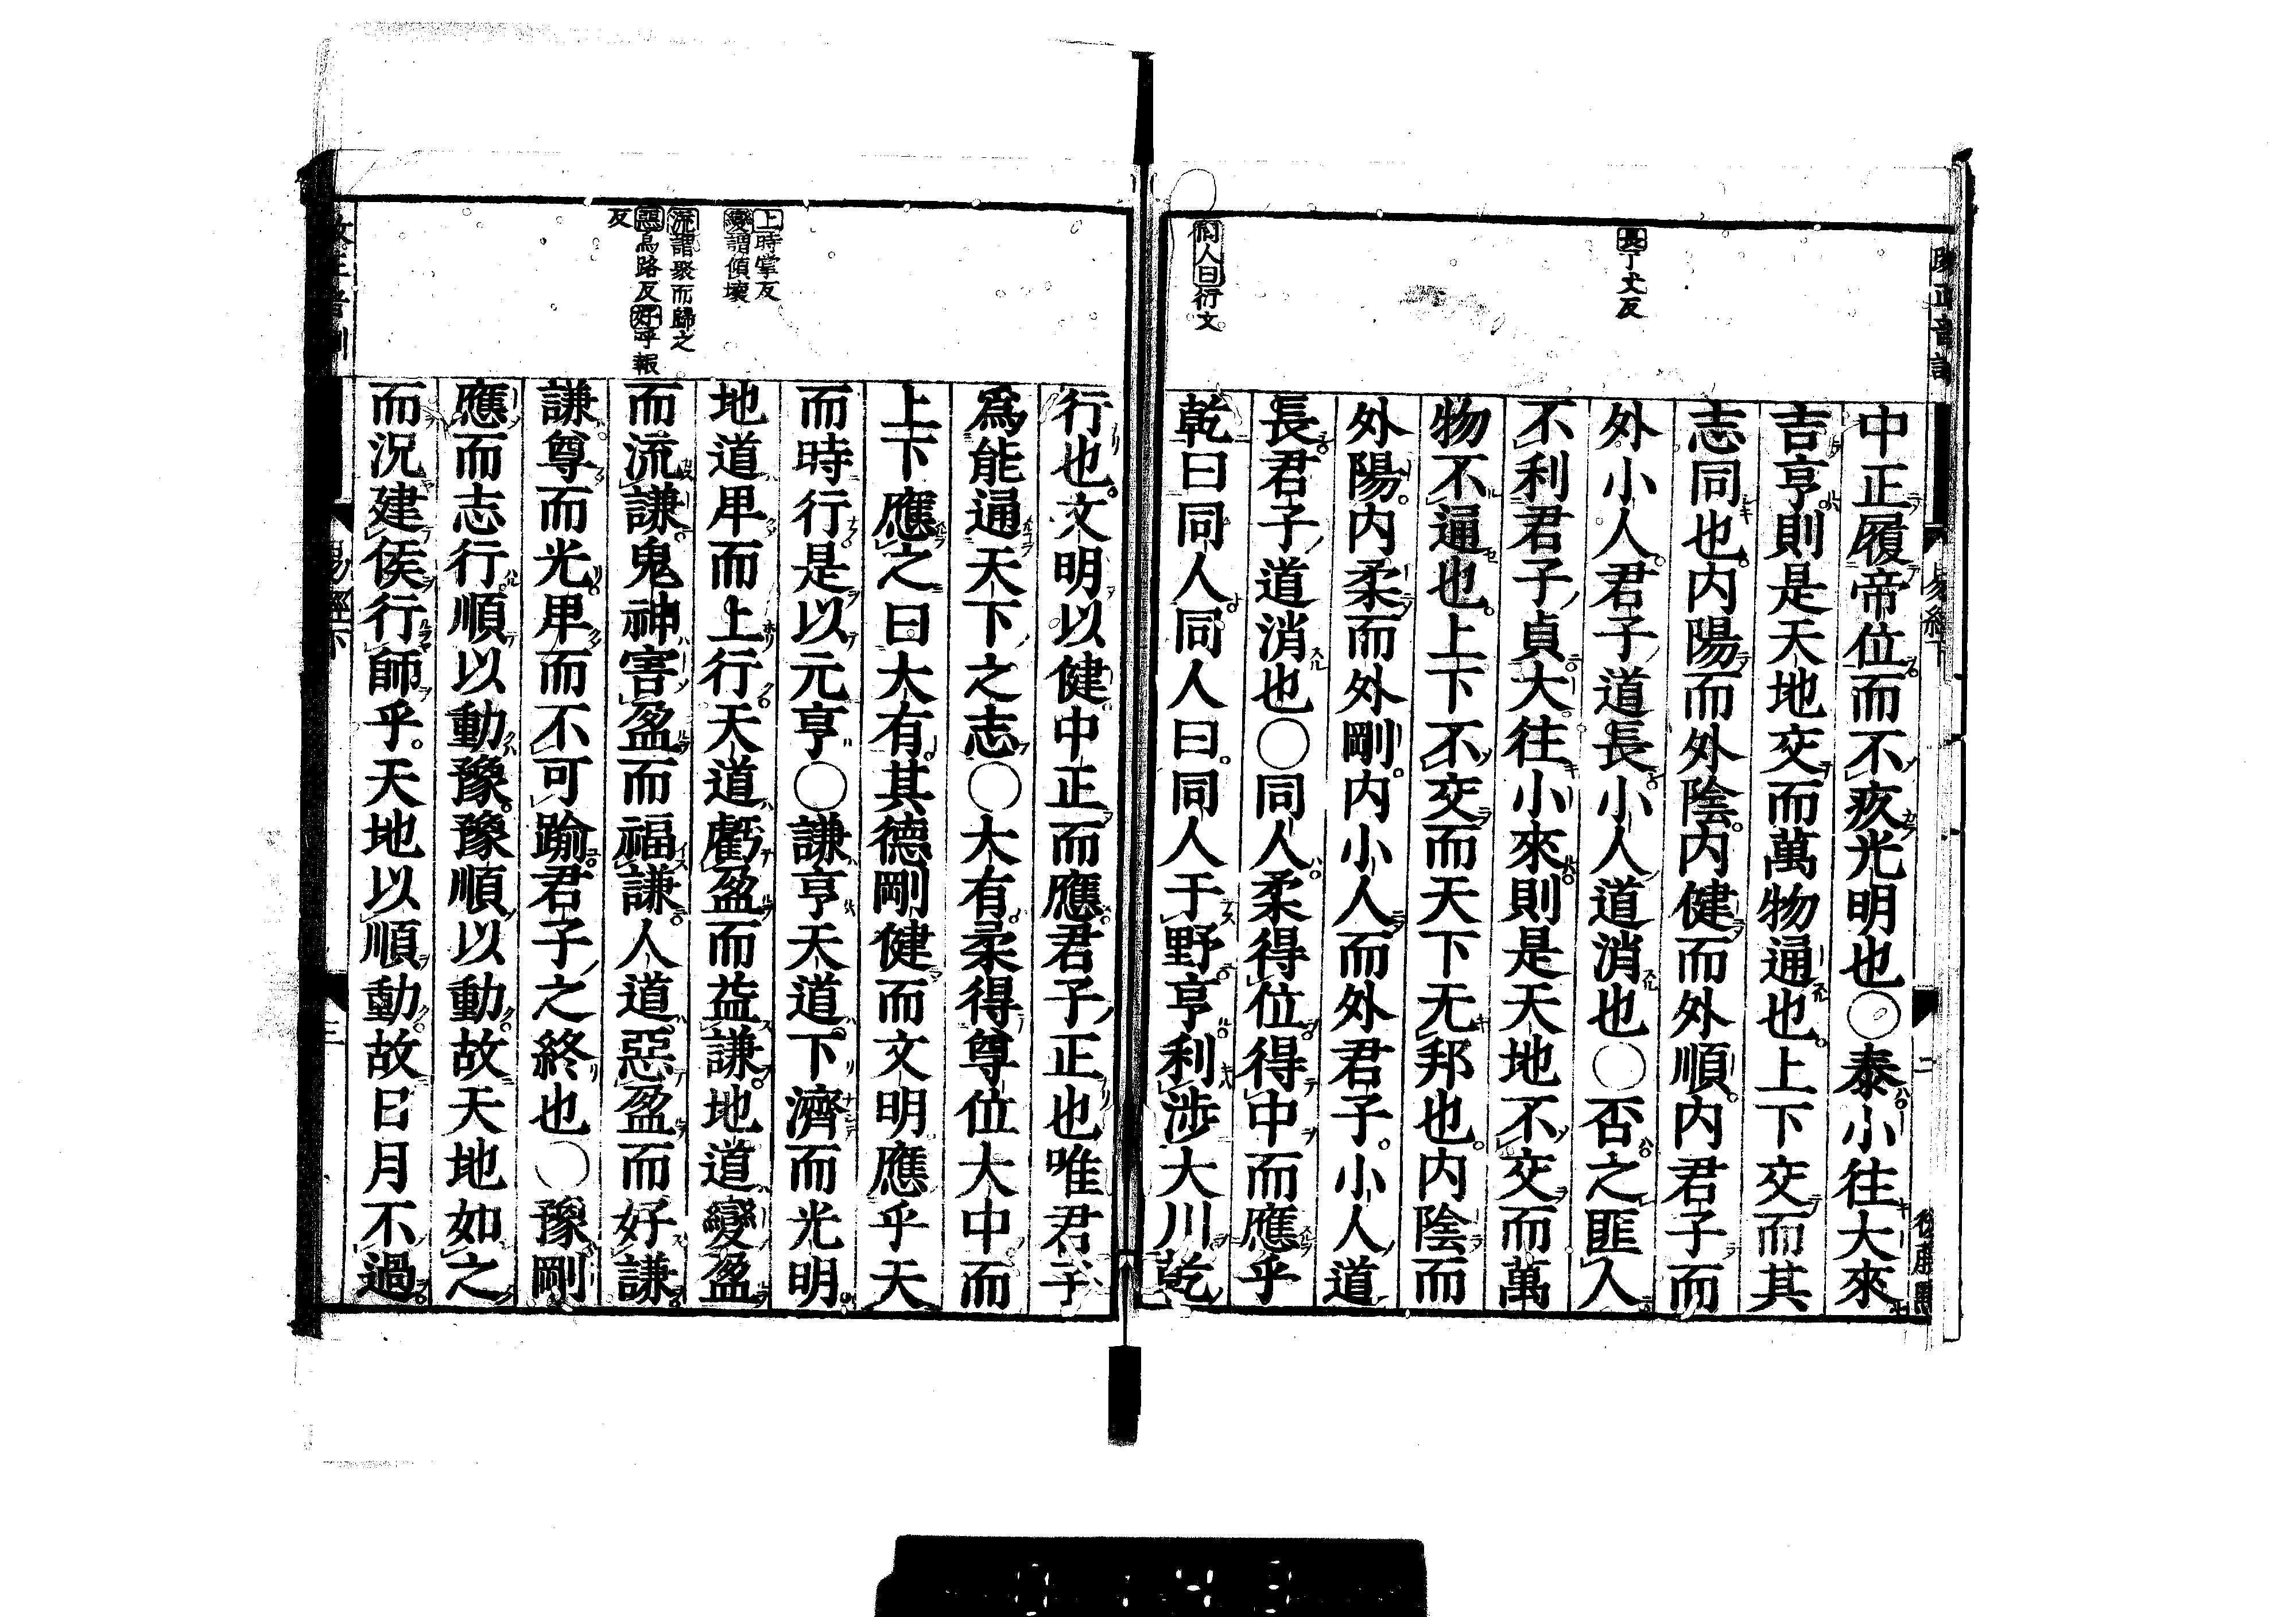 長丁丈反
同人曰衍文
中正履帝位而不疚光明也○泰小往大來
吉亨則是天地交而萬物通也上下交而其
志同也内陽而外陰内健而外順内君子而
外小人君子道長小人道消也○否之匪人
不利君子貞大往小來則是天地不交而萬
物不通也上下不交而天下无邦也内陰而
外陽内柔而外剛内小人而外君子小人道
長君子道消也○同人柔得位得中而應乎
乾曰同人同人曰同人于野亨利涉大川乾
易經下
二
上時掌反
變謂傾壞
流謂聚而歸之
惡烏路反好呼報
反
行也文明以健中正而應君子正也唯君子
爲能通天下之志○大有柔得尊位大中而
上下應之曰大有其德剛健而文明應乎天
而時行是以元亨○謙亨天道下濟而光明
地道卑而上行天道虧盈而益謙地道變盈
而流謙鬼神害盈而福謙人道惡盈而好謙
謙尊而光卑而不可踰君子之終也○豫剛
應而志行順以動豫豫順以動故天地如之
而況建侯行師乎天地以順動故日月不過
易經下
三